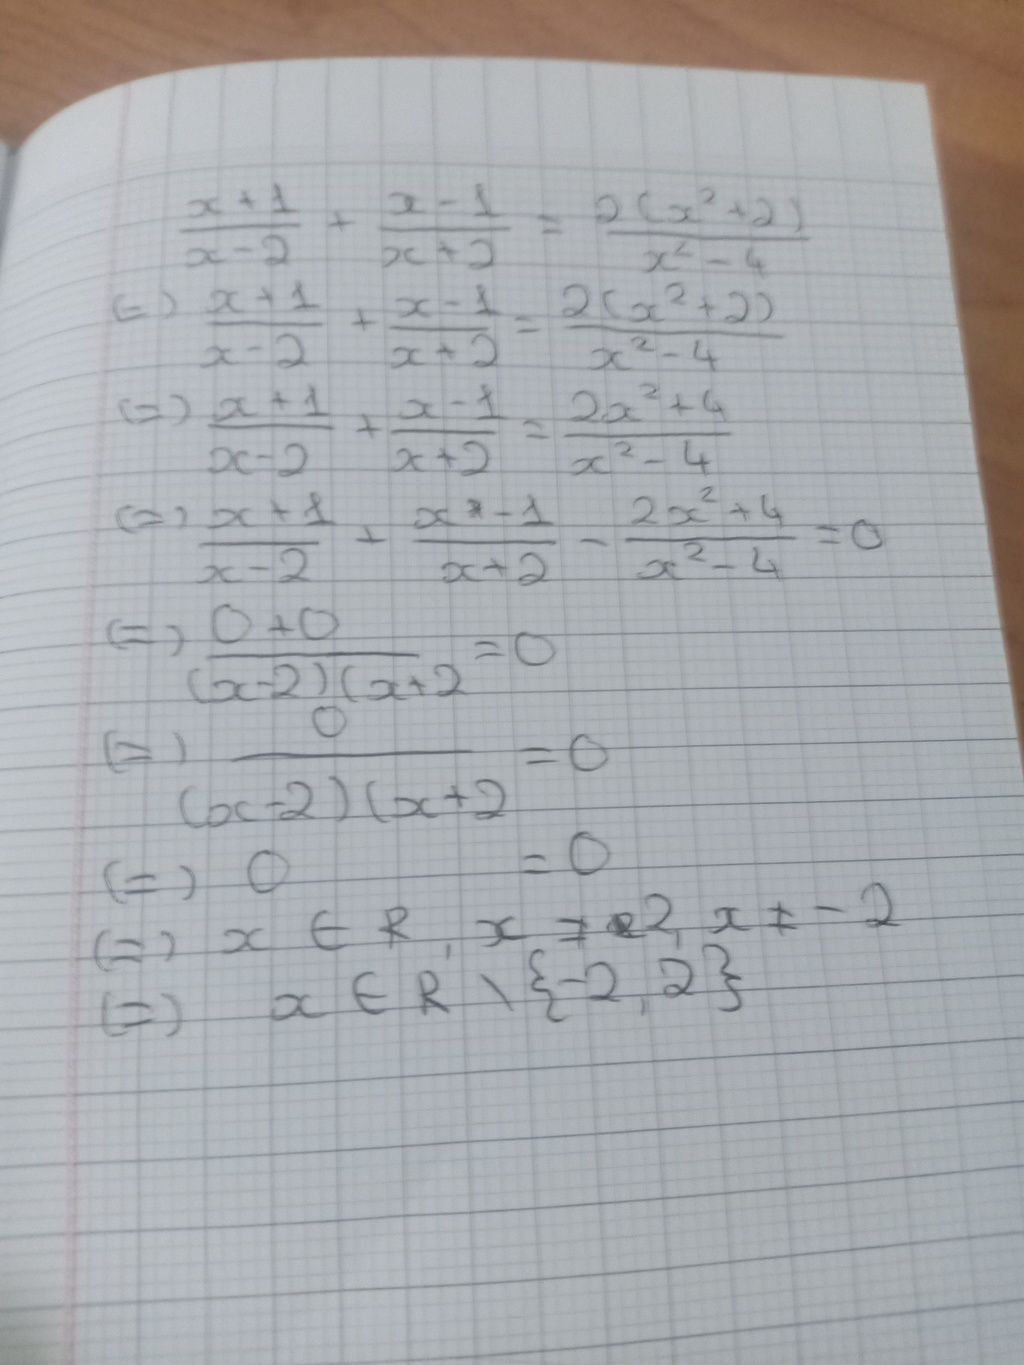 (x+1)/(x-2) + (x-1)/(x+2) = 2(x²+2)/(x²-4)
(=) (x+1)/(x-2) + (x-1)/(x+2) = 2(x²+2)/(x²-4)
(=) (x+1)/(x-2) + (x-1)/(x+2) = (2x²+4)/(x²-4)
(=) (x+1)/(x-2) + (x-1)/(x+2) - (2x²+4)/(x²-4) = 0
(=) (0+0)/((x-2)(x+2) = 0
(=) 0/((x-2)(x+2) = 0
(=) 0 = 0
(=) x ∈ R, x ≠ 2, x ≠ -2
(=) x ∈ R \ {-2, 2}